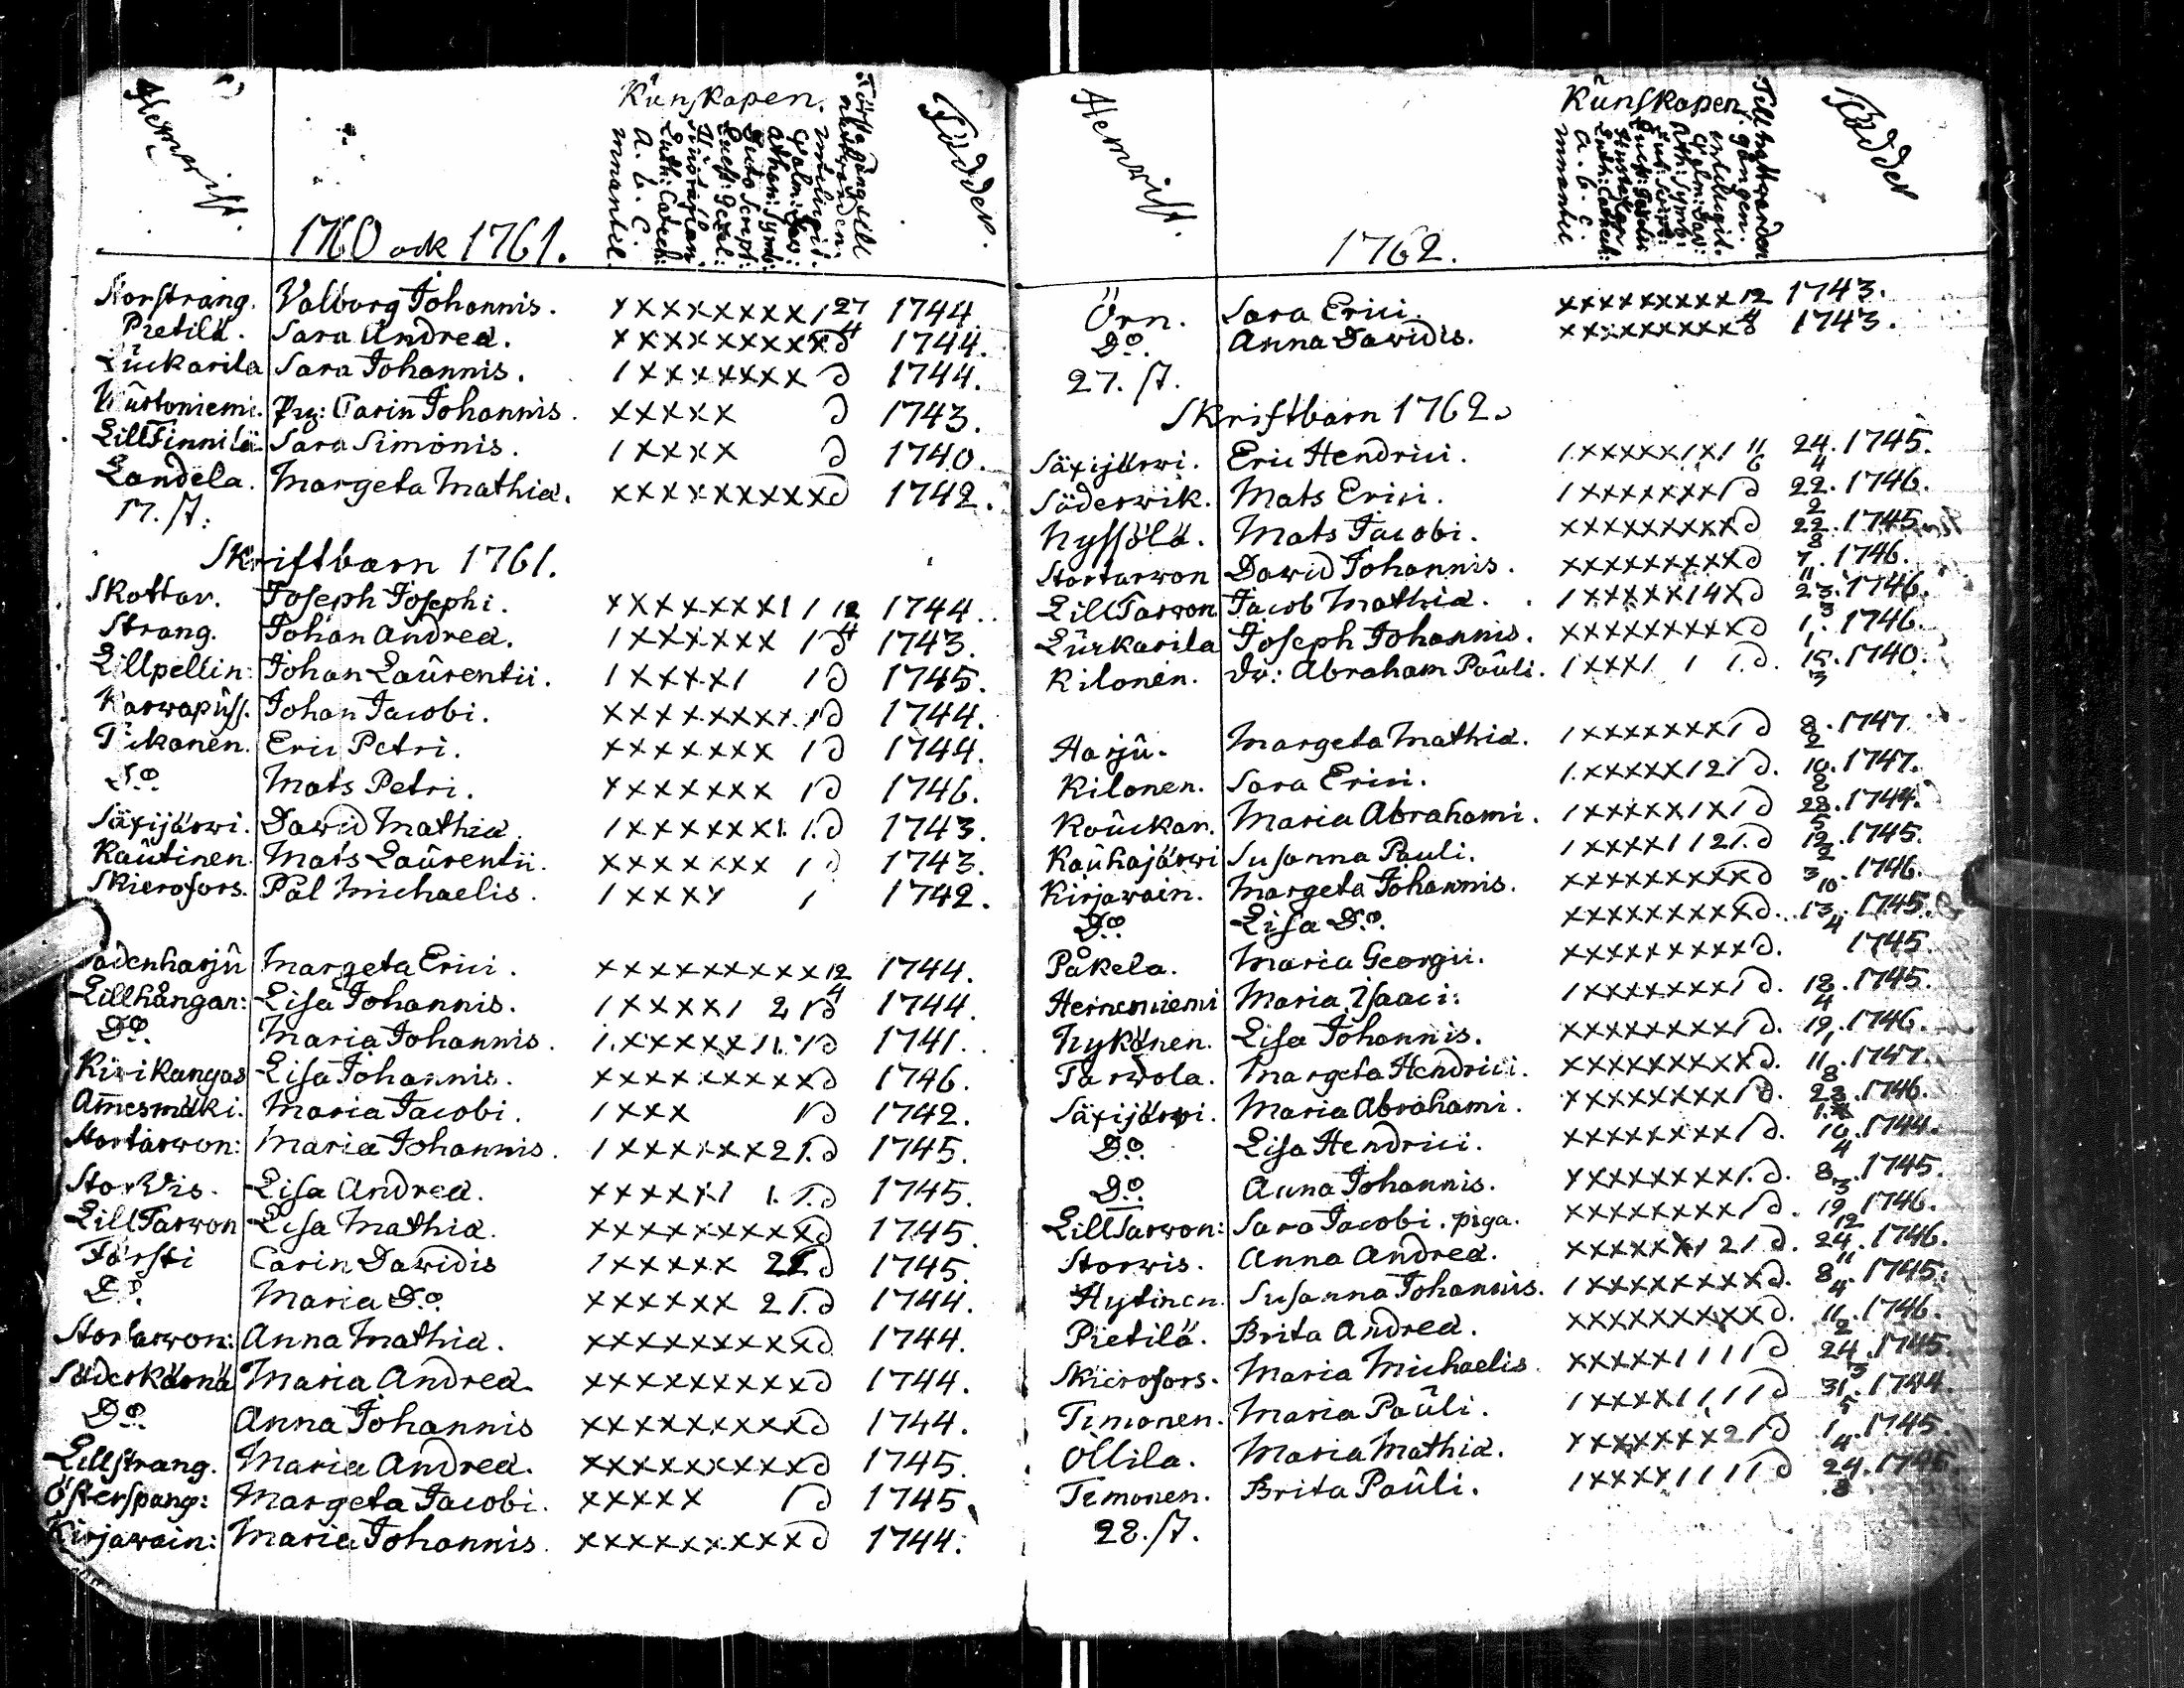 Hemwist. Kunskapen. Första gång till nattwarden. Födder.
innantil. A. b. C. Luth: Catech: Hustaflan. Quest: Gezel: Dicto Script: Athan: Symb: Psalm: Dav: intelligit.
1760 ock 1761.
Storstrang. Valborg Johannis. x x x x x x x x 1 27 1744
Pietilä. Sara Andreæ. x x x x x x x x x d 4 1744.
Luckarila Sara Johannis. 1 x x x x x x x d 1744.
Pig: Carin Johannis. x x x x x d 1743.
LillFinnilä Sara Simonis. 1 x x x x d 1740.
Landela. Margeta Mathiæ. x x x x x x x x x d 1742.
17. st:
Skriftbarn 1761.
Skottar. Joseph Josephi. x x x x x x x 1 1 12 1744.
Strang. Johan Andreæ. 1 x x x x x x 1 d 4 1743.
Lillpellin: Johan Laûrentii. 1 x x x x 1 1 d 1745.
Karwapûss. Johan Jacobi. x x x x x x x x 1 d 1744.
Tikanen. Eric Petri. x x x x x x x 1 d 1744.
Do. Mats Petri. x x x x x x x 1 d 1746.
Säxijärwi. Dawid Mathiæ. 1 x x x x x x 1. 1. d 1743.
Kaûtinen. Mats Laûrentii. x x x x x x x 1 d 1743.
Skierofors. Pål Michaelis. 1 x x x x 1 1742.
Margeta Erici. x x x x x x x x x 12 1744.
Lillhångan: Lisa Johannis. 1 x x x x 1 2 1 d 4 1744.
Do. Maria Johannis. 1. x x x x x 1 1. 1 d 1741.
Kirikangas Lisa Johannis. x x x x x x x x x d 1746.
Amesmäki. Maria Jacobi. 1 x x x 1 d 1742.
Stortarwon: Maria Johannis. 1 x x x x x x 2 1. d 1745.
StorWis. Lisa Andreæ. x x x x x 1 1. 1. d 1745.
LillTarwon Lisa Mathiæ. x x x x x x x x x d 1745.
Tårsti Carin Dawidis 1 x x x x x 2 1 d 1745.
Do. Maria Do. x x x x x x 2 1. d 1744.
Stortarwon: Anna Mathiæ. x x x x x x x x x d 1744.
Söderkårnä Maria Andreæ. x x x x x x x x x d 1744.
Do. Anna Johannis x x x x x x x x x d 1744.
Lillstrang. Maria Andreæ. x x x x x x x x x d 1745.
Österspang: Margeta Jacobi. x x x x x 1 d 1745.
Kirjawain: Maria Johannis. x x x x x x x x x d 1744.
Hemwist. Kunskapen. Till nattwarden gången. Födder
innantil A. b. C. Luth: Catech: Hustaflan Athan: Symb: Psalm: Dav: intelligit.
1762.
Örn. Sara Erici. x x x x x x x x x 12 1743.
Do. Anna Dawidis. x x x x x x x x x 4 8 1743.
27. st.
Skriftbarn 1762.
Säxijärwi. Eric Hendrici. 1. x x x x x 1 x 1 11 6 24. 4 1745.
Söderwik. Mats Erici. 1 x x x x x x x 1 d 22. 2 1746.
Nyssölä. Mats Jacobi. x x x x x x x x x d 22. 8 1745
Stortarwon Dawid Johannis. x x x x x x x x x d 7. 11 1746.
LillTarwon Jacob Mathiæ. 1 x x x x x 1 4 x d 23. 3 1746.
Lûckarila Joseph Johannis. x x x x x x x x x d 1. 1 1746.
Kilonen. Dr: Abraham Paûli. 1 x x x 1 1 1. d. 15. 3 1740.
Harjû. Margeta Mathiæ. 1 x x x x x x x 1 d 8. 2 1747.
Kilonen. Sara Erici. 1. x x x x x 1 2 1 d. 10. 8 1747.
Koûckar. Maria Abrahami. 1 x x x x x 1 x 1 d 28. 5 1744.
Kaûhajärwi Susanna Pauli. 1 x x x x 1 1 2 1. d 12. 2 1745.
Kirjawain. Margeta Johannis. x x x x x x x x x d 3. 10 1746.
Do. Lisa Do. x x x x x x x x 1 d. 13. 4 1745.
Påkela. Maria Georgii. x x x x x x x x x d. 1745
Heineniemi Maria Isaaci: 1 x x x x x x x 1 d. 18. 4 1745.
Nykänen. Lisa Johannis. x x x x x x x x 1 d. 19. 1 1746.
Tarwola. Margeta Hendrici. x x x x x x x x x d. 11. 8 1747.
Säxijärwi. Maria Abrahami. x x x x x x x x 1 d. 23. 1746.
Do. Lisa Hendrici. x x x x x x x x 1 d. 10. 4 1744.
Do. Anna Johannis. x x x x x x x x 1. d. 8. 3 1745.
LillTarwon: Sara Jacobi. piga. x x x x x x x x 1 d. 19. 12 1746.
Storwis. Anna Andreæ. x x x x x x 1 2 1 d. 24. 11 1746.
Hytinen. Susanna Johannis. 1 x x x x x x x x d. 8. 4 1745.
Pietilä. Brita Andreæ. x x x x x x x x x d. 11. 2 1746.
Skierofors. Maria Michaelis x x x x x 1 1 1 1 d 24. 3 1745.
Timonen. Maria Paûli. 1 x x x x 1 1 1 1 d 31. 5 1744.
Ollila. Maria Mathiæ. x x x x x x x 2 1 d 1. 4 1745.
Timonen. Brita Paûli. 1 x x x x 1 1 1 1 d 24. 8. 1746.
28. st.